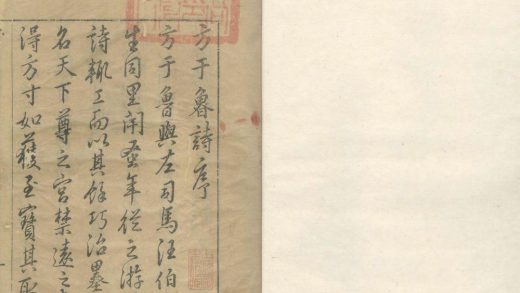 方于魯詩序
方于魯與左司馬汪伯
生同里閈蚤年從之游
詩輒工而以其餘巧治墨
名天下尊之宮禁遠之
得方寸如獲至寶其